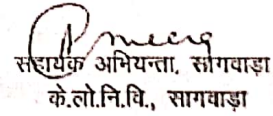 सहायक अभियन्ता, सागवाड़ा
के.लो.नि.वि., सागवाड़ा